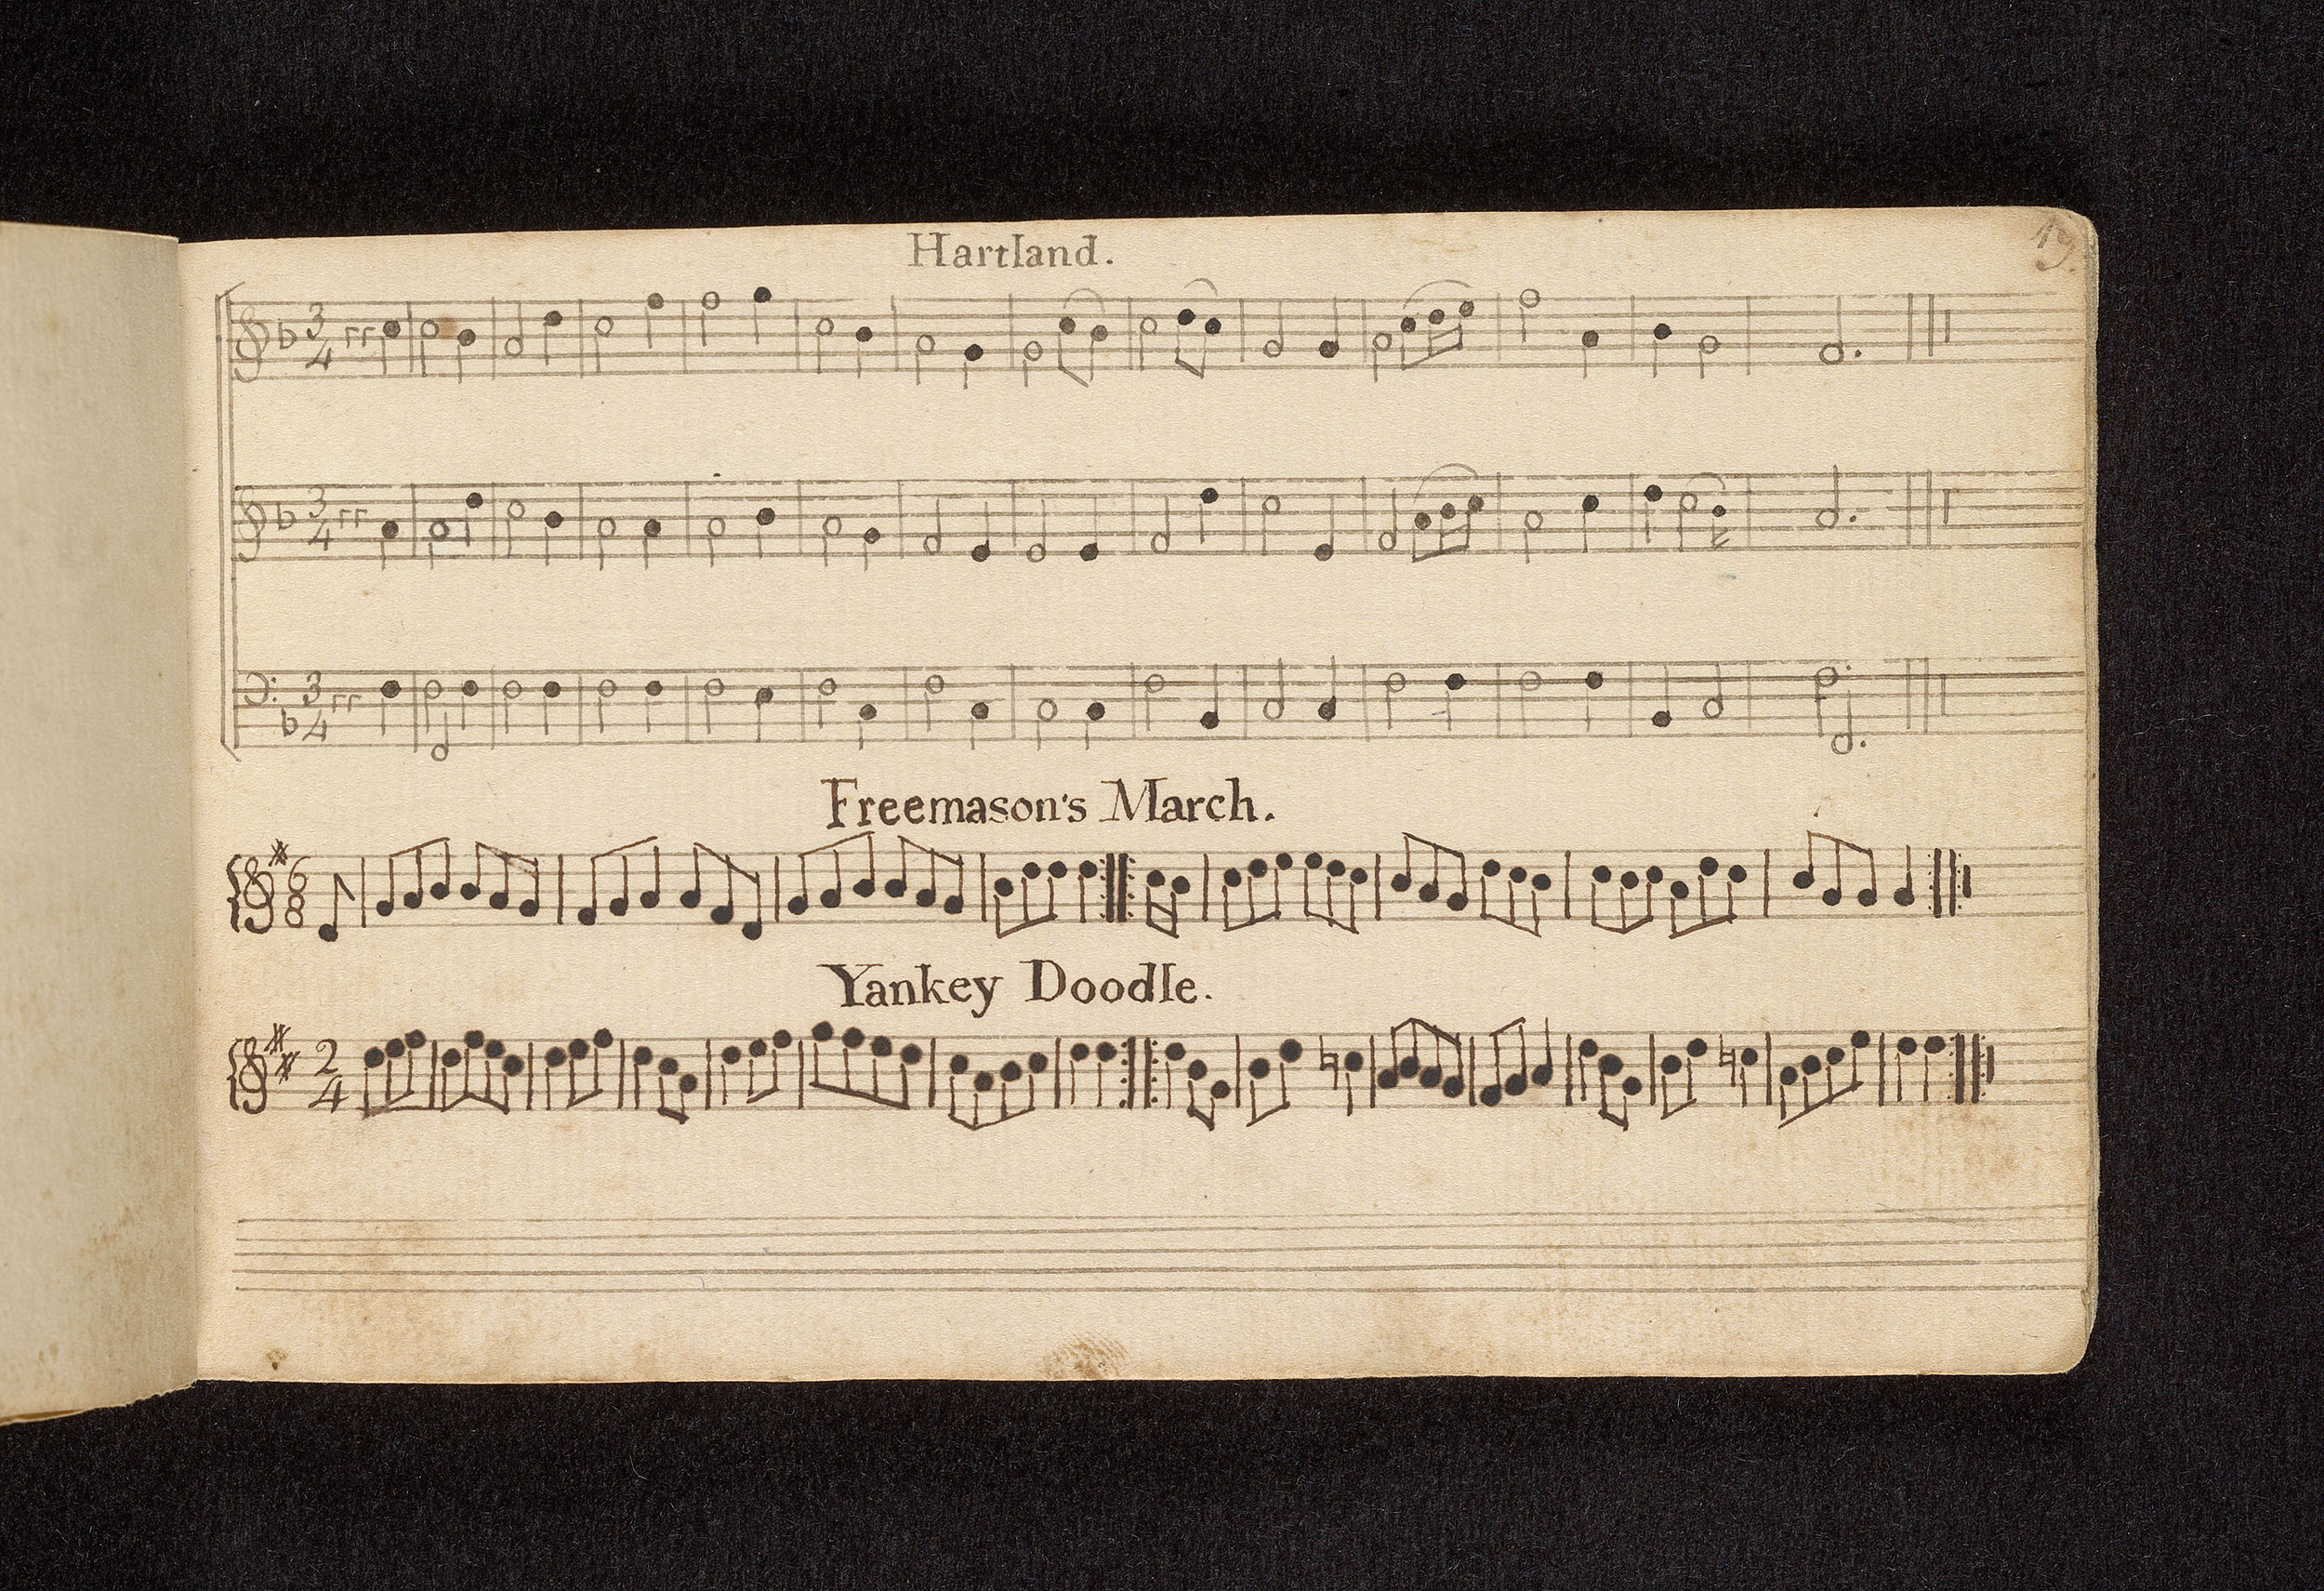 19.
Hartland.
3/4
3/4
3/4
Freemason's March.
6/8
Yankey Doodle.
2/4